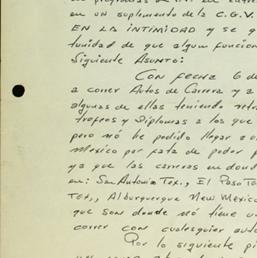 en un suplemento de la C.G.V.
EN LA INTIMIDAD y se q
tunidad de que algun funcion
Siguiente ASUNTO:
CON FECHA 6 de
a correr Autos de Carrera y a
algunas de ellas teniendo
trofeos y Diplomas a los que
pero nó he podido llegar
Mexico por fata de poder p
ya que las carreras en dond
en: San Antonio Tex., EL Paso T
Tex., Alburquerque New Mexico
que son donde nó tiene
correr con cualesquier aut
Por lo siguiente pi